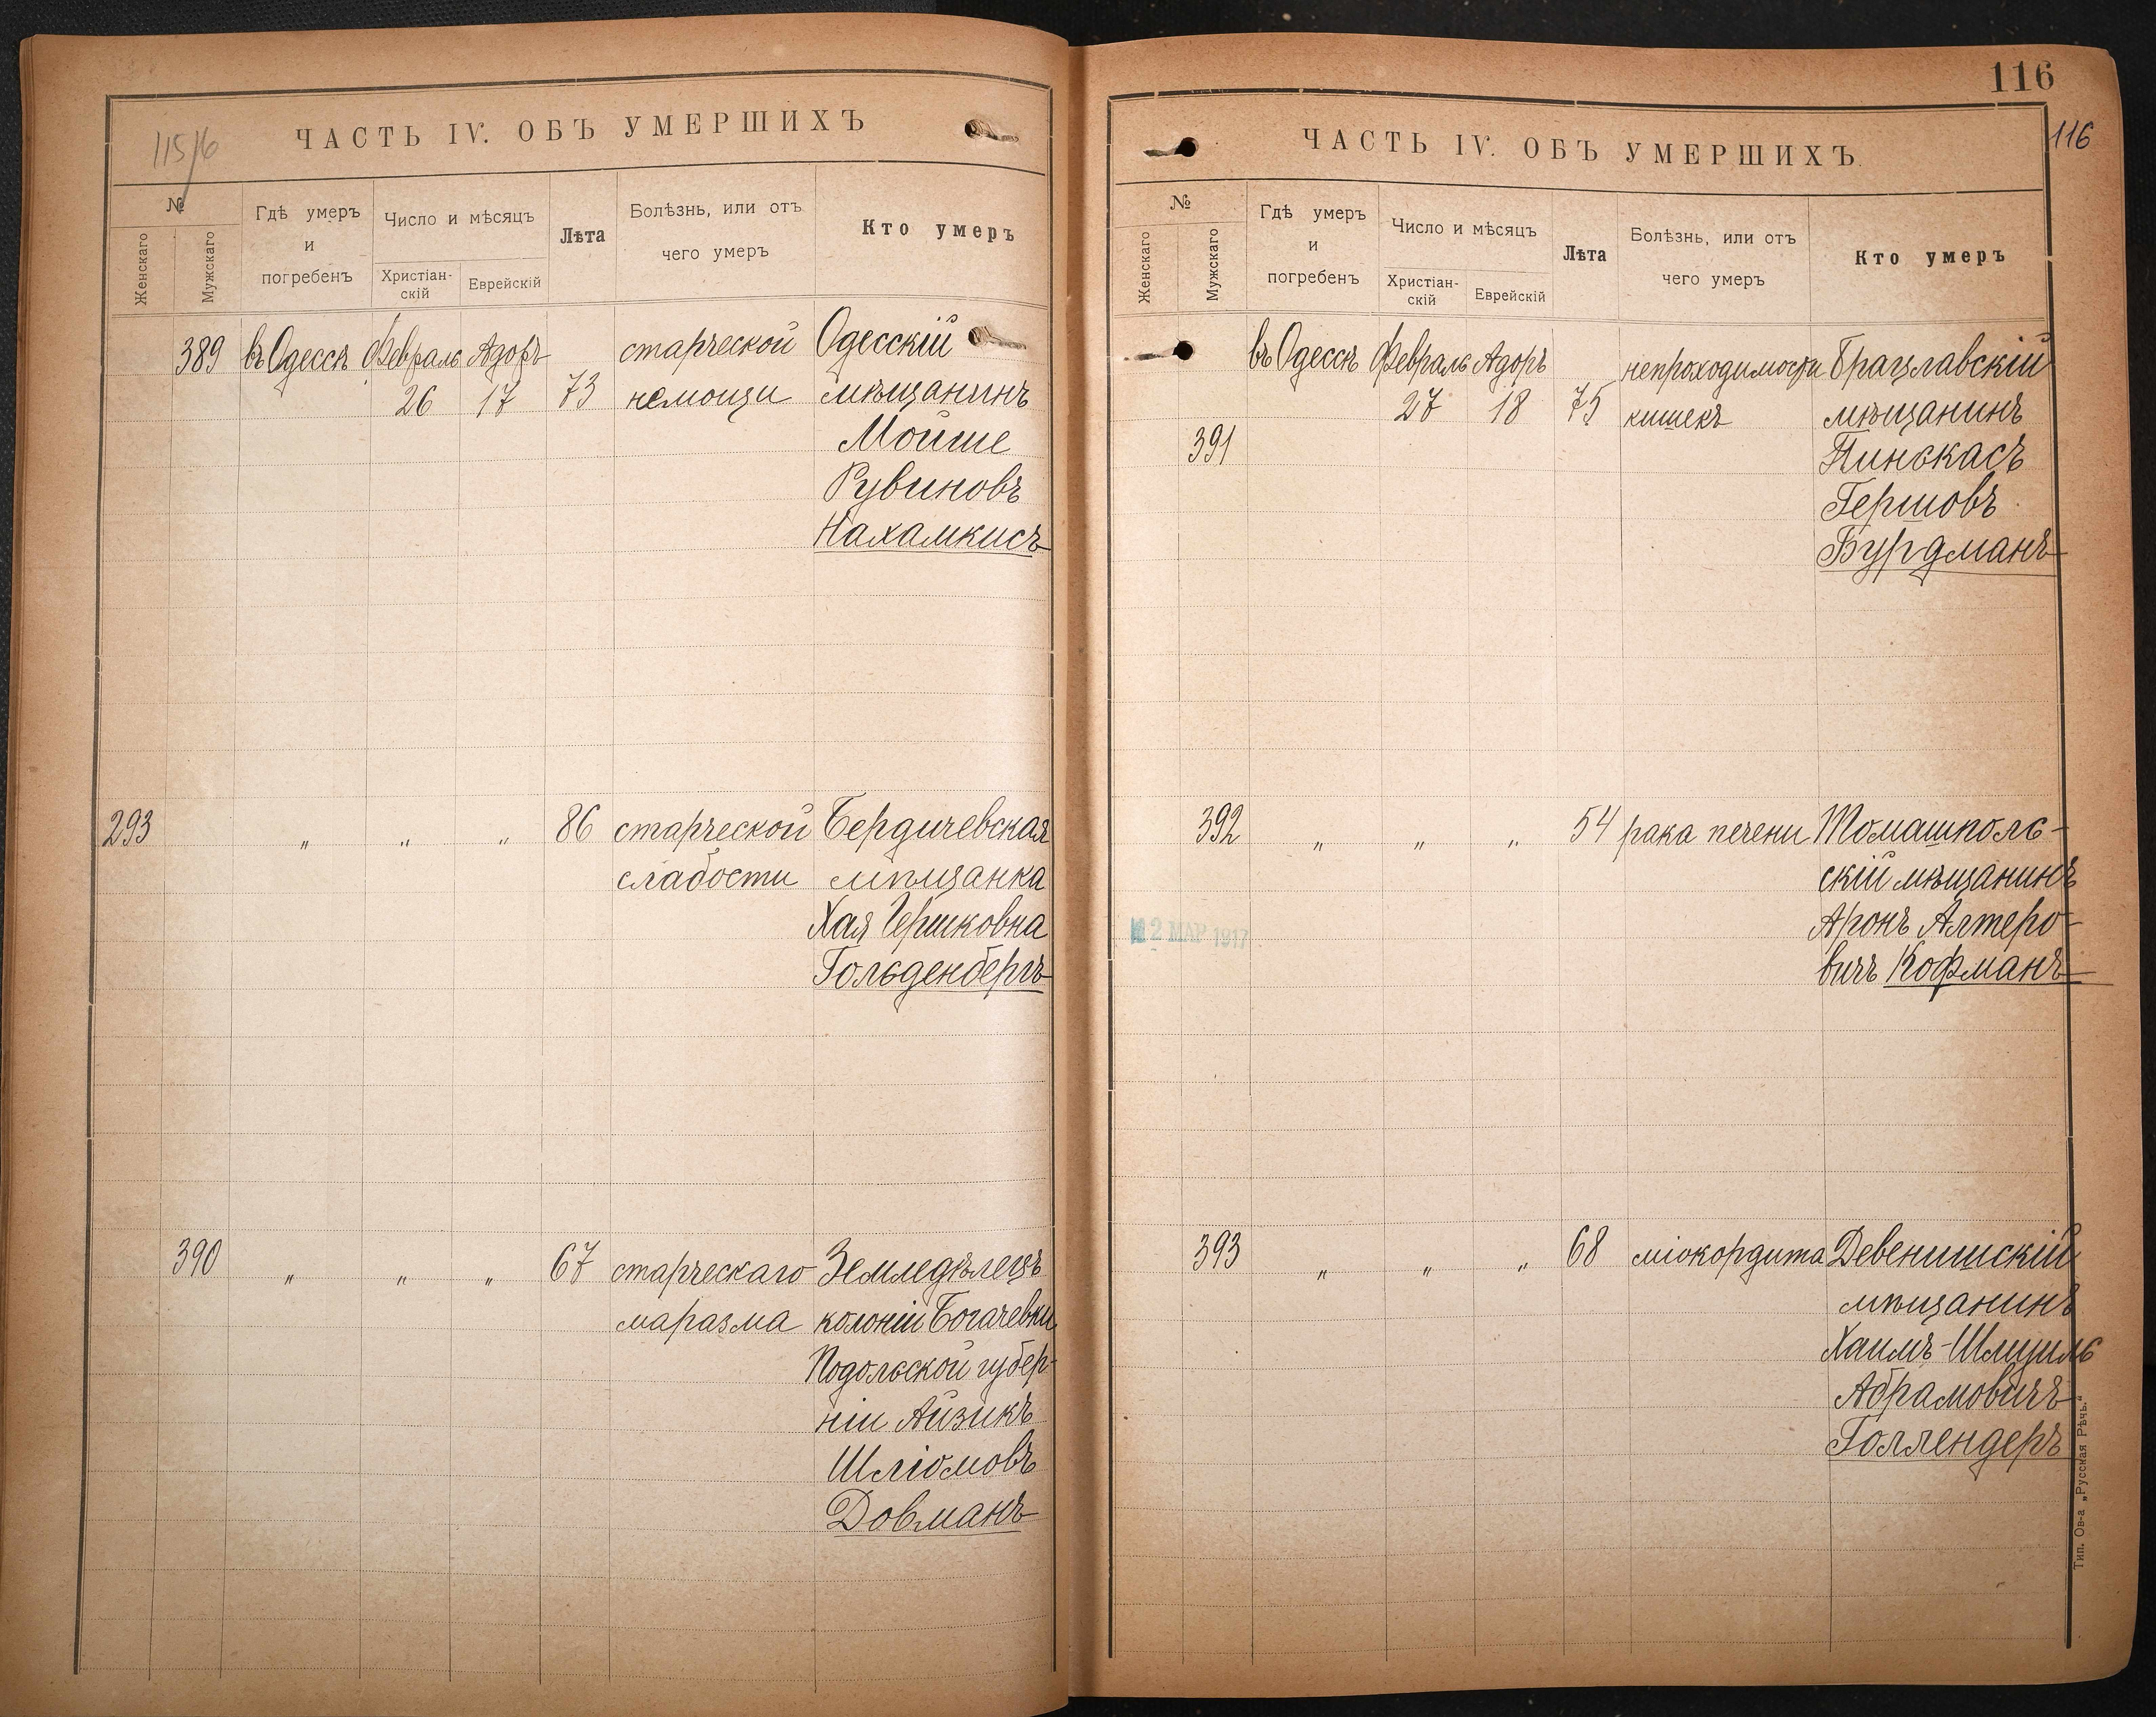 115/6
ЧАСТЬ IV. ОБЪ УМЕРШИХЪ
№
Женскаго
Мужскаго
Гдѣ умеръ
и
погребенъ
Число и мѣсяцъ
Христіан-
скій
Еврейскій
Лѣта
Болѣзнь, или отъ
чего умеръ
Кто умеръ
389 въ Одессѣ Февраль Адоръ старческой Одесскій
26 17 73 немощи мѣщанинъ
Мойше
Рувиновъ
Нахамкисъ
293 " " " 86 старческой Бердичевская
слабости мѣщанка
Хая Гершковна
Гольденбергъ
390 " " " 67 старческаго Земледѣлецъ
маразма колоніи Богачевки
Подольской губер-
ніи Айзикъ
Шліомовъ
Довманъ
116
116
ЧАСТЬ IV. ОБЪ УМЕРШИХЪ
№
Женскаго
Мужскаго
Гдѣ умеръ
и
погребенъ
Число и мѣсяцъ
Христіан-
скій
Еврейскій
Лѣта
Болѣзнь, или отъ
чего умеръ
Кто умеръ
въ Одессѣ Февраль Адоръ непроходимости Брацлавскій
27 18 75 кишекъ мѣщанинъ
391 Пинькасъ
Гершовъ
Бурдманъ
392 " " " 54 рака печени Томашполь-
скій мѣщанинъ
Аронъ Алтеро-
2 МАР 1917
вичъ Кофманъ
393 " " " 68 міокордита Девенишскій
мѣщанинъ
Хаимъ-Шмуиль
Абрамовичъ
Голлендеръ
Тип. Ов-а „Русская Рѣчь."